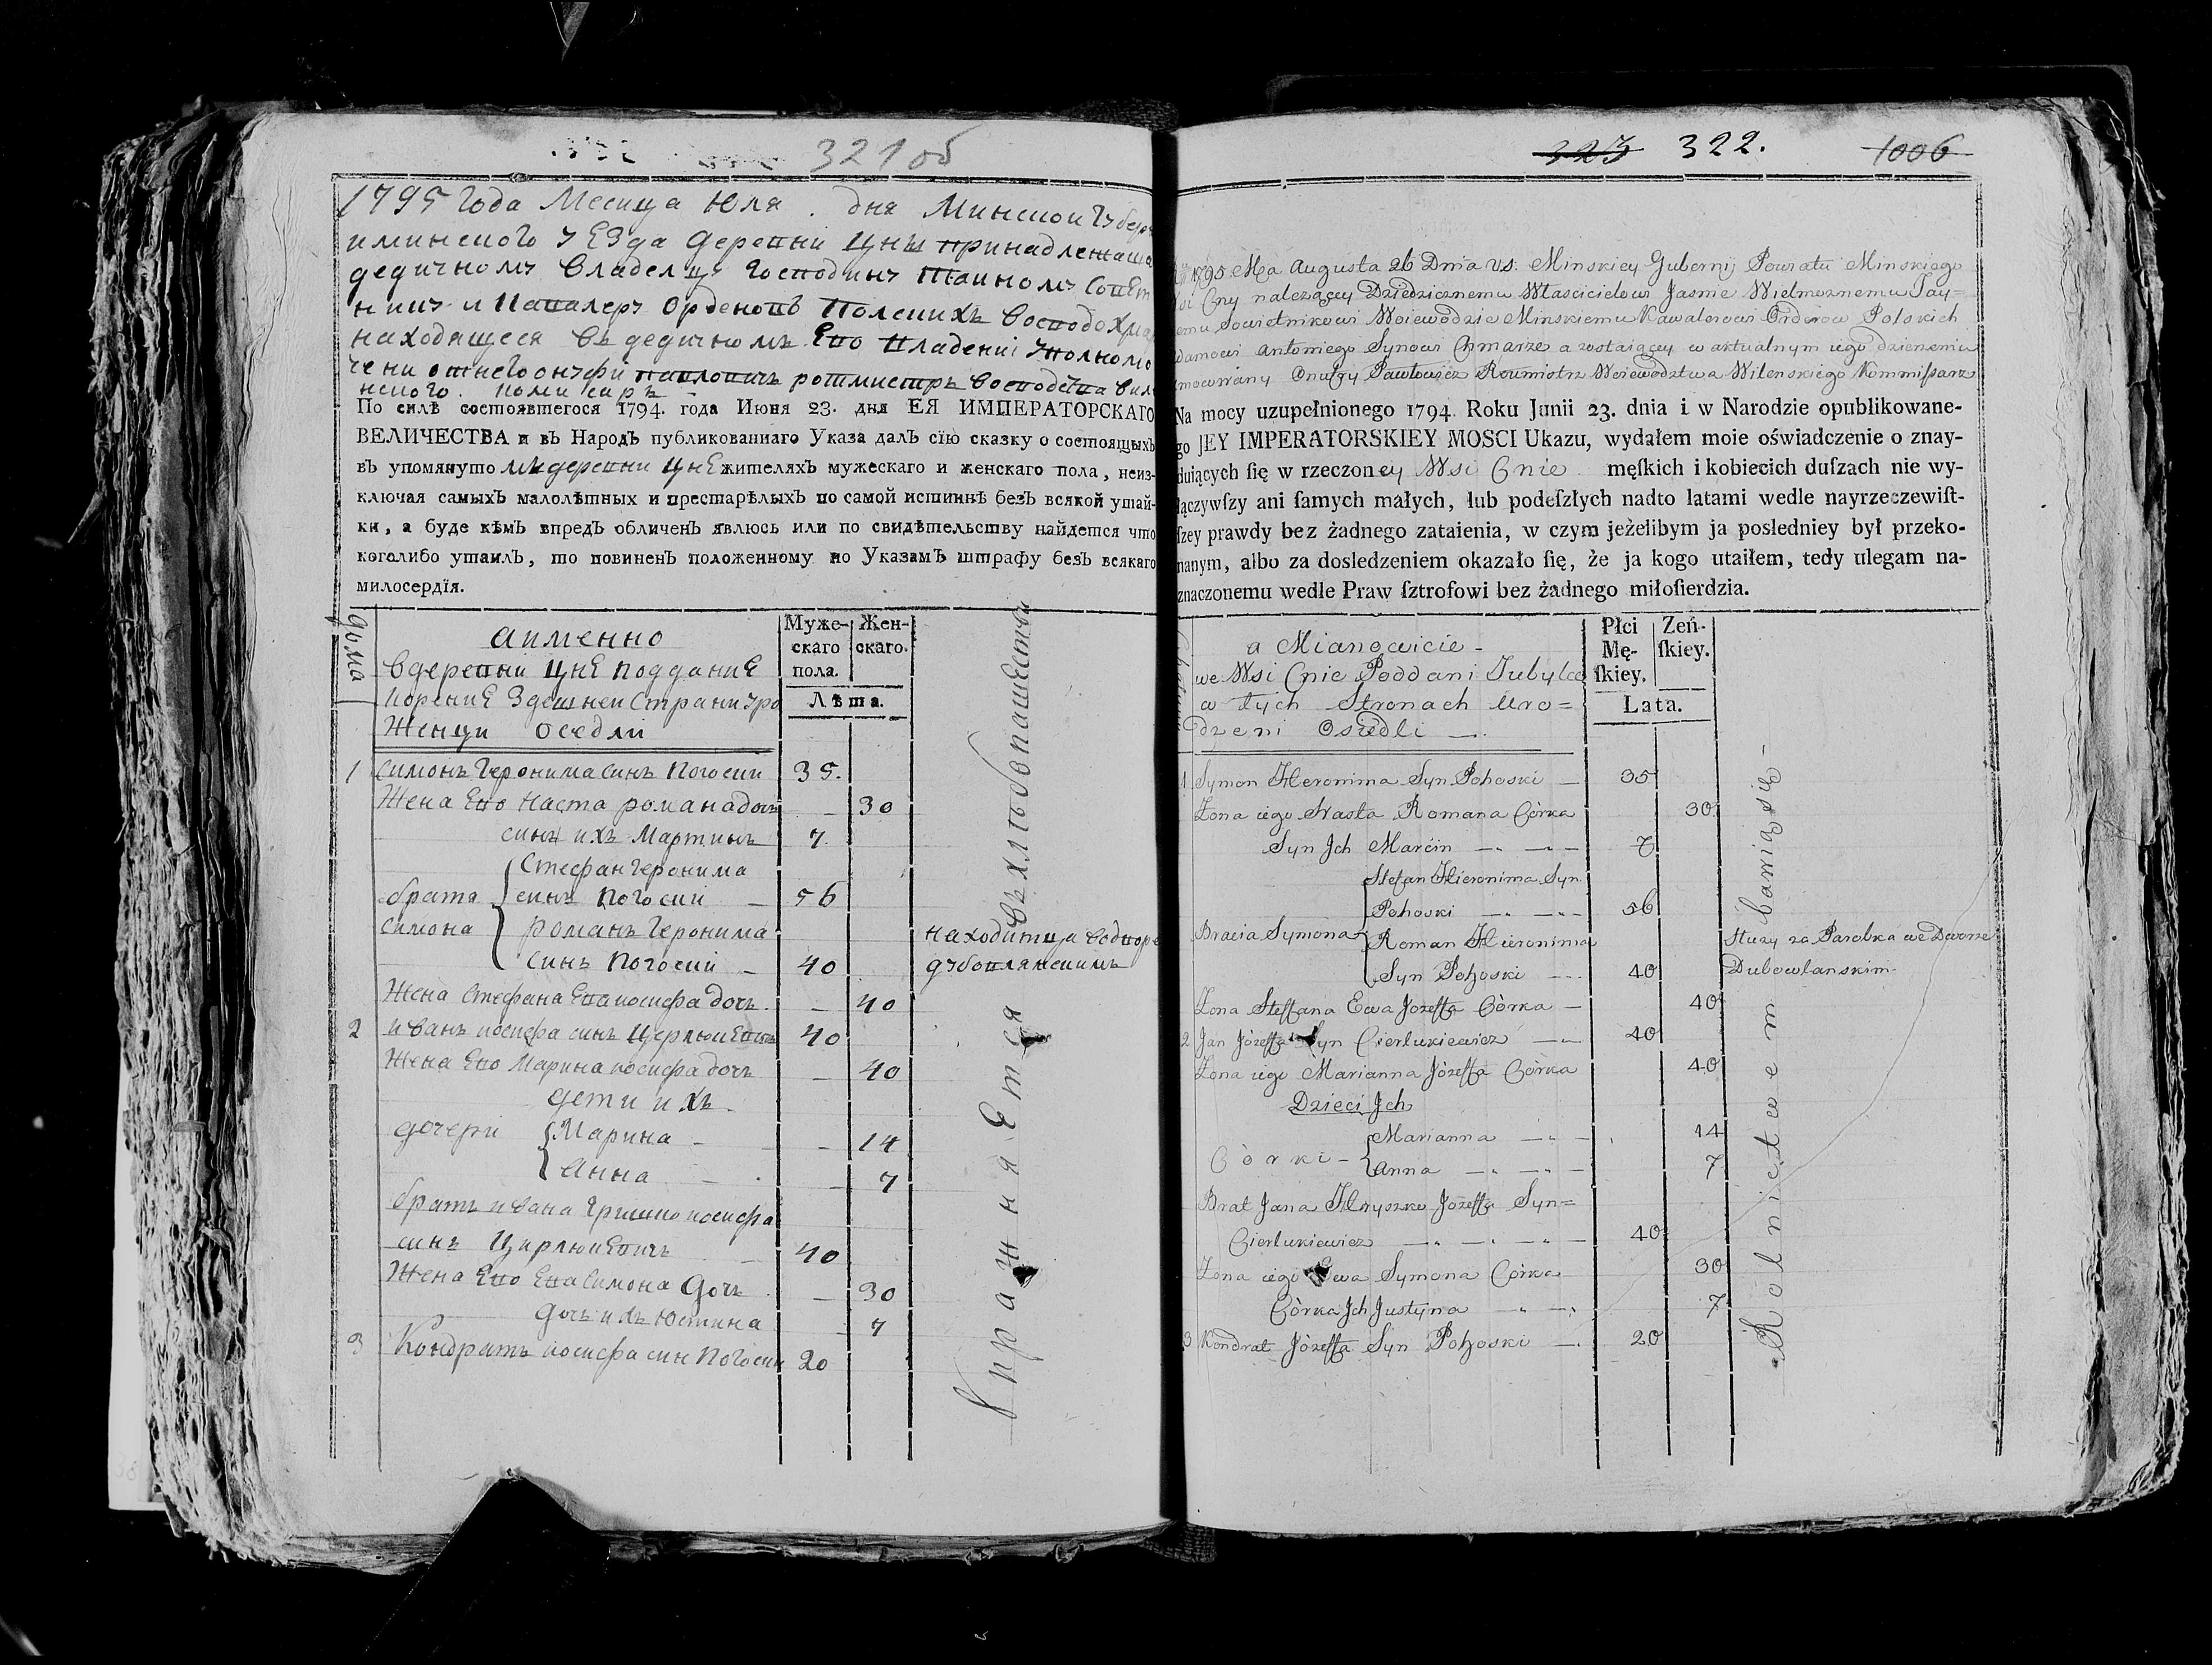 321 об
1795 года Месица Юля . дня Минской Губер
и минского уЕзда деревни Цны принадлежаща
дедичному владелцу Господину Тайному Совет
нику и Кавалеру Орденовъ Полскихъ
находящеся въ дедичномъ Его владениі уполномо
чени отнего онуфри павловичъ ротмистръ
По силѣ состоявшегося 1794. года Июня 23. дня ЕЯ ИМПЕРАТОРСКАГО
ВЕЛИЧЕСТВА и въ Народъ публикованнаго Указа далъ сїю сказку о состоящыхъ
въ упомянуто деревни ЦнЕ жителяхъ мужескаго и женскаго пола, неиз-
ключая самыхъ малолѣтныхъ и престарѣлыхъ по самой истиннѣ безъ всякой утай-
ки, а буде кѣмъ впредъ обличенъ явлюсь или по свидѣтельству найдется что
коголибо утаилъ, то повиненъ положенному по Указамъ штрафу безъ всякаго
милосердїя.
дома
аименно
вдеревни ЦнЕ поддание
корение Здешней Страни уро
Женци оседли
Муже-
скаго
пола.
Жен-
скаго.
Лѣта.
1 Симонъ Геронима синъ Погоский 35.
Жена Его Наста романа дочь — 30
синъ ихъ Мартинъ 7
Стефан Геронима
брата синъ Погоский — 56
Симона Романъ Геронима находитца водворе
синъ Погоский — 40 дубовлянскимъ
Жена Стефана Ева иосифа дочъ. — 40
2 иванъ иосифа синъ Церлюкевичъ 40
Жена Его Марина иосифа дочъ — 40
дети ихъ
дочери Марина — — 14
Анна — — 7
братъ ивана Гришко иосифа
синъ Цирлюкевичъ — 40
Жена Его Ева Симона дочъ — 30
дочъ ихъ Юстина 7
3 Кондратъ иосифа син Погоский 20
въ хлѣбопашествѣ
упражняЕтся
323 322. 1006
1795 Ma Augusta 26 Dnia v.s. Minskiey Gubernij Powiatu Minskiego
Wsi Cny należącey Dziedzicznemu Własścicielowi Jasnie Wielmoznemu Tay=
emu Sowietnikowi Woiewodzie Minskiemu Kawalerowi Orderow Polskich
Adamowi Antoniego Synowi Chmarze a zostaiącey w aktualnym iego dzierzeniu
mocowany Onufry Pawłowicz Roumistrz Woiewodztwa Wilenskiego Kommissarz
Na mocy uzupełnionego 1794. Roku Junii 23. dnia i w Narodzie opublikowane-
go JEY IMPERATORSKIEY MOSCI Ukazu, wydałem moie oświadczenie o znay-
duiących ſię w rzeczoney Wsi Cnie męſkich i kobiecich duſzach nie wy-
łączywſzy ani ſamych małych, łub podeſzłych nadto latami wedle nayrzeczewiſt-
ſzey prawdy bez żadnego zataienia, w czym jeżelibym ja posledniey był przeko-
nanym, albo za dosledzeniem okazało ſię, że ja kogo utaiłem, tedy ulegam na-
znaczonemu wedle Praw ſztrofowi bez żadnego miłoſierdzia.
a Mianowicie -
we Wsi Cnie Poddani Tubylce
w tych Stronach Uro=
dzeni Osiedli —
Płci
Mę-
ſkiey.
Zeń-
ſkiey.
Lata.
1 Symon Hieronima Syn Pohoski — 35
Zona iego Nasta Romana Córka 30
Syn Jch Marcin — — 7
Stefan Hieronima Syn
Pohoski — — 56
Bracia Symona Roman Hieronima Służy za Parobka we Dworze
Syn Pohoski — 40 Dubowlanskim.
Zona Steffana Ewa Jozeffa Córka — 40
2 Jan Józeffa Syn Cierlukiewicz — 40
Zona iego Marianna Józeffa Córka 40
Dzieci Jch
Marianna — 14
Córki - Anna — — 7
Brat Jana Hryszko Jozeffa Syn=
Cierlukiewicz — — — 40
Zona iego Ewa Symona Córka 30
Córka Jch Justyna — — 7
3 Kondrat Józeffa Syn Pohoski — 20
Rolnictwem bawią się -